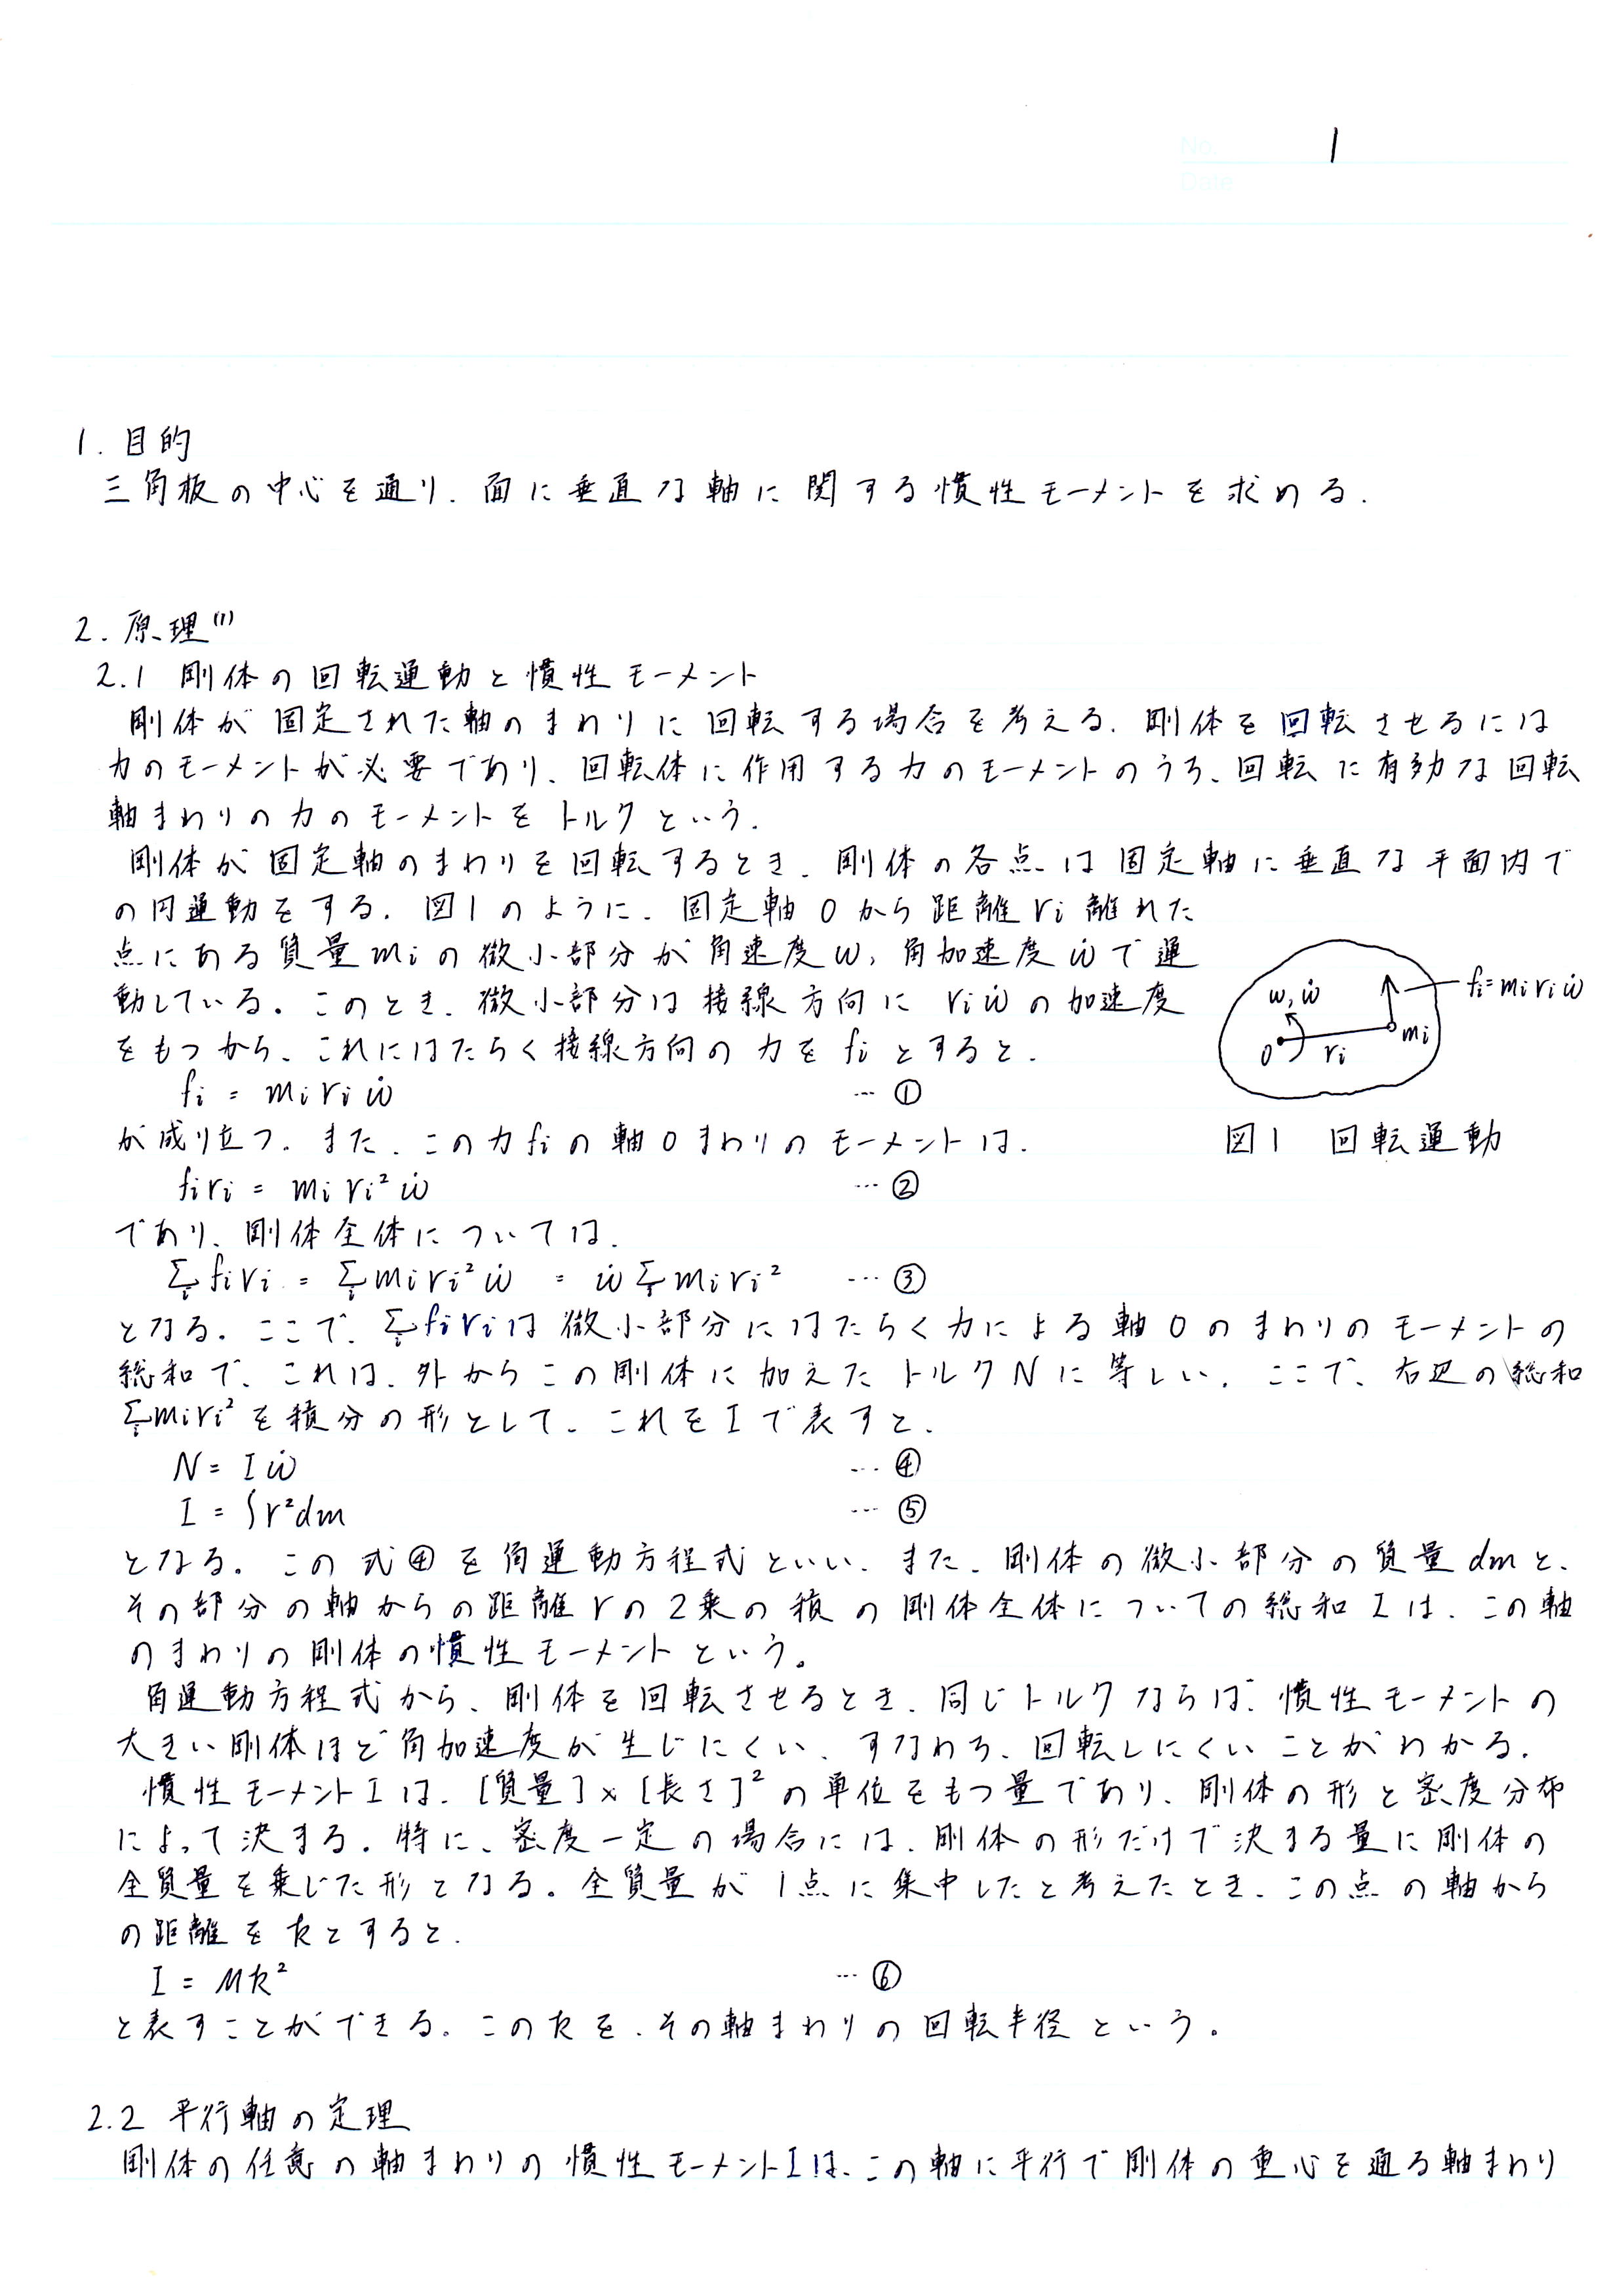 No. 1
Date
1. 目的
三角板の中心を通り、面に垂直な軸に関する慣性モーメントを求める.
2. 原理⁽¹⁾
2.1 剛体の回転運動と慣性モーメント
剛体が固定された軸のまわりに回転する場合を考える. 剛体を回転させるには
力のモーメントが必要であり、回転体に作用する力のモーメントのうち、回転に有効な回転
軸まわりの力のモーメントをトルクという.
剛体が固定軸のまわりを回転するとき、剛体の各点は固定軸に垂直な平面内で
の円運動をする. 図1のように、固定軸Oから距離ri離れた
点にある質量miの微小部分が角速度ω, 角加速度ω̇で運
動している。このとき、微小部分は接線方向にriω̇の加速度
をもつから、これにはたらく接線方向の力をfiとすると.
fi = mi ri ω̇ … ①
が成り立つ. また、この力fiの軸Oまわりのモーメントは.
firi = mi ri² ω̇ … ②
であり、剛体全体については.
Σi firi = Σi miri² ω̇ = ω̇ Σi miri² … ③
ω, ω̇
O
ri
mi
fi=miriω̇
図1 回転運動
となる. ここで、Σi firiは微小部分にはたらく力による軸Oのまわりのモーメントの
総和で、これは、外からこの剛体に加えたトルクNに等しい. ここで、右辺の総和
Σi miri²を積分の形として、これをIで表すと.
N = I ω̇ … ④
I = ∫r²dm … ⑤
となる. この式④を角運動方程式といい、また、剛体の微小部分の質量dmと、
その部分の軸からの距離rの2乗の積の剛体全体についての総和Iは、この軸
のまわりの剛体の慣性モーメントという。
角運動方程式から、剛体を回転させるとき、同じトルクならば、慣性モーメントの
大きい剛体ほど角加速度が生じにくい、すなわち、回転しにくいことがわかる.
慣性モーメントIは、[質量]×[長さ]²の単位をもつ量であり、剛体の形と密度分布
によって決まる. 特に、密度一定の場合には、剛体の形だけで決まる量に剛体の
全質量を乗じた形となる。全質量が1点に集中したと考えたとき、この点の軸から
の距離をkとすると.
I = Mk² … ⑥
と表すことができる。このkを、その軸まわりの回転半径という。
2.2 平行軸の定理
剛体の任意の軸まわりの慣性モーメントIは、この軸に平行で剛体の重心を通る軸まわり